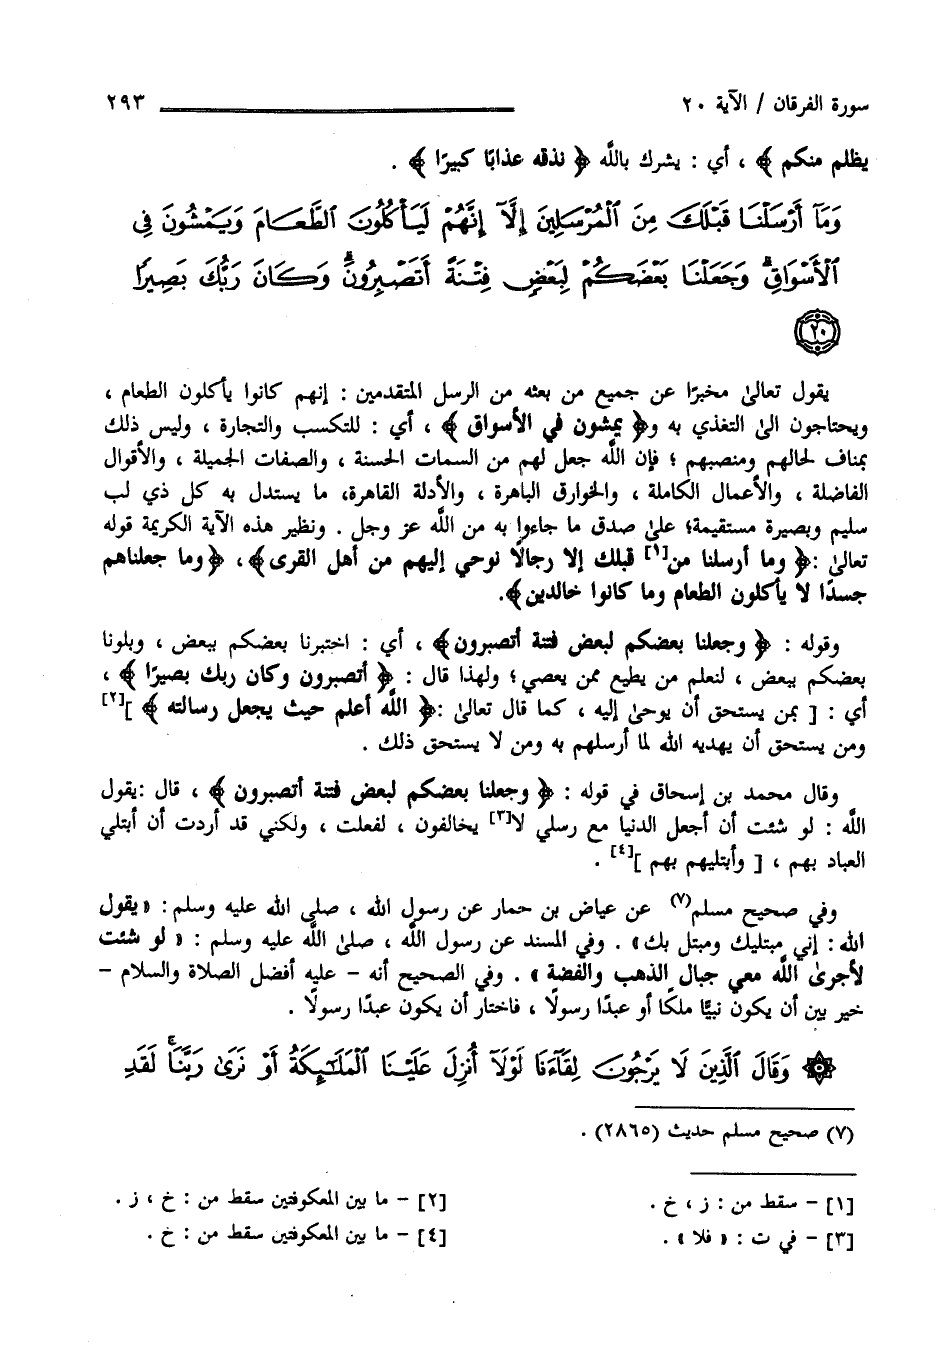 سورة الفرقان / الآية ٢٠
٢٩٣
يظلم منكم ﴾ ، أي : يشرك باللَّه ﴿ نذقه عذابًا كبيرًا ﴾ .
وَمَآ أَرْسَلْنَا قَبْلَكَ مِنَ ٱلْمُرْسَلِينَ إِلَّآ إِنَّهُمْ لَيَأْكُلُونَ ٱلطَّعَامَ وَيَمْشُونَ فِى
ٱلْأَسْوَاقِ ۗ وَجَعَلْنَا بَعْضَكُمْ لِبَعْضٍ فِتْنَةً أَتَصْبِرُونَ ۗ وَكَانَ رَبُّكَ بَصِيرًا
٢٠
يقول تعالىٰ مخبرًا عن جميع من بعثه من الرسل المتقدمين : إنهم كانوا يأكلون الطعام ،
ويحتاجون الىٰ التغذي به و﴿ يمشون في الأسواق ﴾ ، أي : للتكسب والتجارة ، وليس ذلك
بمناف لحالهم ومنصبهم ؛ فإن اللَّه جعل لهم من السمات الحسنة ، والصفات الجميلة ، والأقوال
الفاضلة ، والأعمال الكاملة ، والخوارق الباهرة ، والأدلة القاهرة، ما يستدل به كل ذي لب
سليم وبصيرة مستقيمة؛ علىٰ صدق ما جاءوا به من اللَّه عز وجل . ونظير هذه الآية الكريمة قوله
تعالىٰ :﴿ وما أرسلنا من[١] قبلك إلا رجالًا نوحي إليهم من أهل القرى﴾، ﴿وما جعلناهم
جسدًا لا يأكلون الطعام وما كانوا خالدين﴾.
وقوله : ﴿ وجعلنا بعضكم لبعض فتنة أتصبرون﴾ ، أي : اختبرنا بعضكم ببعض ، وبلونا
بعضكم ببعض ، لنعلم من يطيع ممن يعصي ؛ ولهذا قال : ﴿ أتصبرون وكان ربك بصيرًا ﴾ ،
أي : [ بمن يستحق أن يوحىٰ إليه ، كما قال تعالىٰ :﴿ اللَّه أعلم حيث يجعل رسالته ﴾ ][٢]
ومن يستحق أن يهديه الله لما أرسلهم به ومن لا يستحق ذلك .
وقال محمد بن إسحاق في قوله : ﴿ وجعلنا بعضكم لبعض فتنة أتصبرون ﴾ ، قال :يقول
اللَّه : لو شئت أن أجعل الدنيا مع رسلي لا[٣] يخالفون ، لفعلت ، ولكني قد أردت أن أبتلي
العباد بهم ، [ وأبتليهم بهم ][٤] .
وفي صحيح مسلم(٧) عن عياض بن حمار عن رسول الله ، صلى الله عليه وسلم : «يقول
الله : إني مبتليك ومبتل بك» . وفي المسند عن رسول اللَّه ، صلىٰ اللَّه عليه وسلم : « لو شئت
لأجرىٰ اللَّه معي جبال الذهب والفضة » . وفي الصحيح أنه - عليه أفضل الصلاة والسلام -
خير بين أن يكون نبيًّا ملكًا أو عبدًا رسولًا ، فاختار أن يكون عبدًا رسولًا .
۞ وَقَالَ ٱلَّذِينَ لَا يَرْجُونَ لِقَآءَنَا لَوْلَآ أُنزِلَ عَلَيْنَا ٱلْمَلَـٰٓئِكَةُ أَوْ نَرَىٰ رَبَّنَا ۗ لَقَدِ
(٧) صحيح مسلم حديث (٢٨٦٥) .
[١] - سقط من : ز ، خ .
[٢] - ما بين المعكوفتين سقط من : خ ، ز .
[٣] - في ت : « فلا » .
[٤] - ما بين المعكوفتين سقط من : خ .